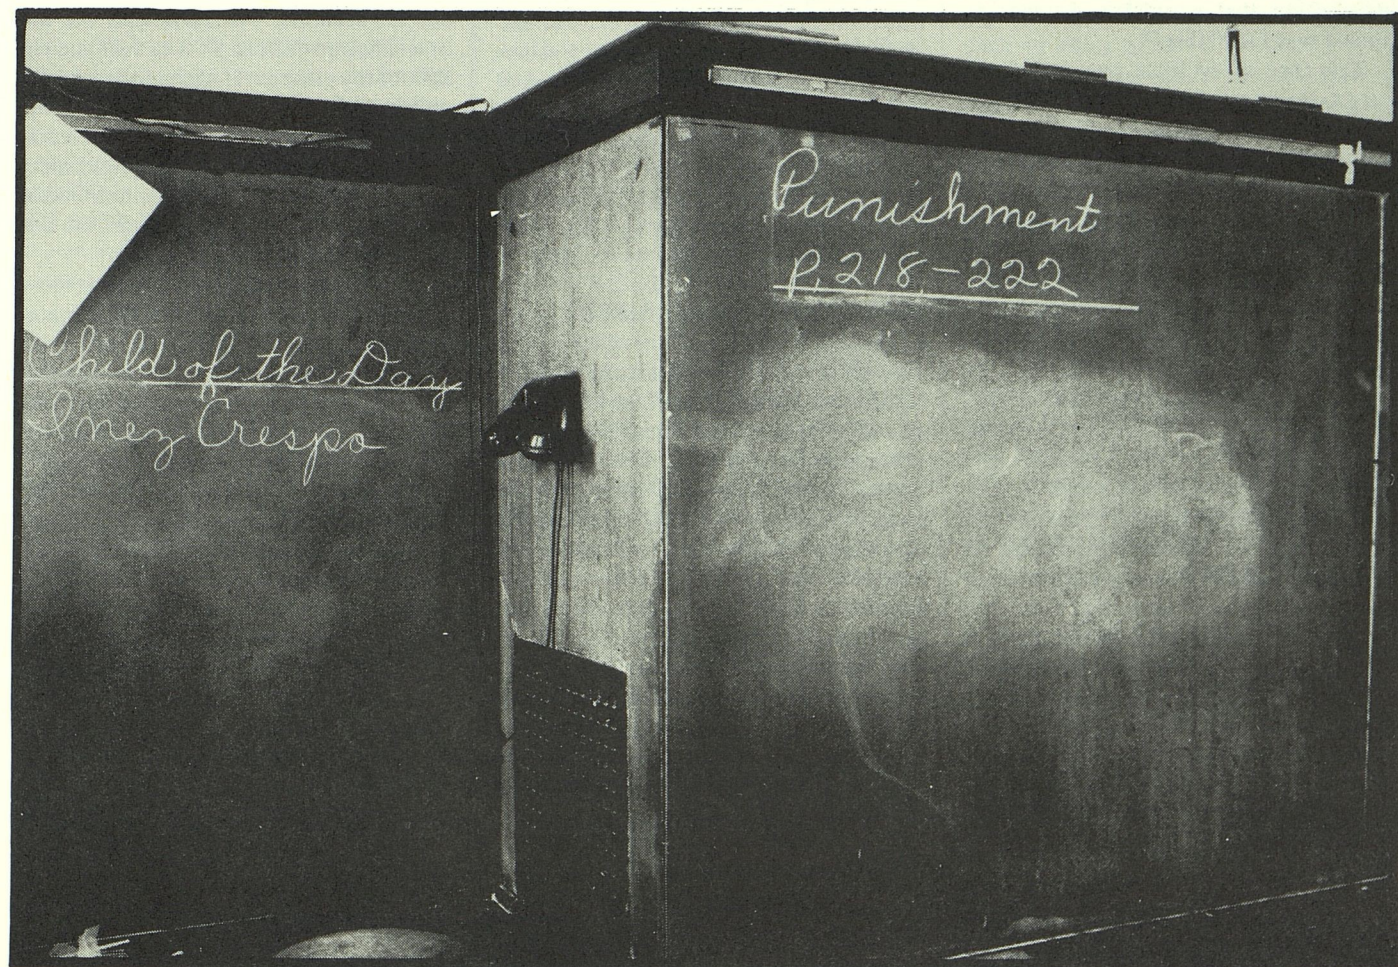 Child of the Day
Inez Crespo
Punishment
p. 218-222